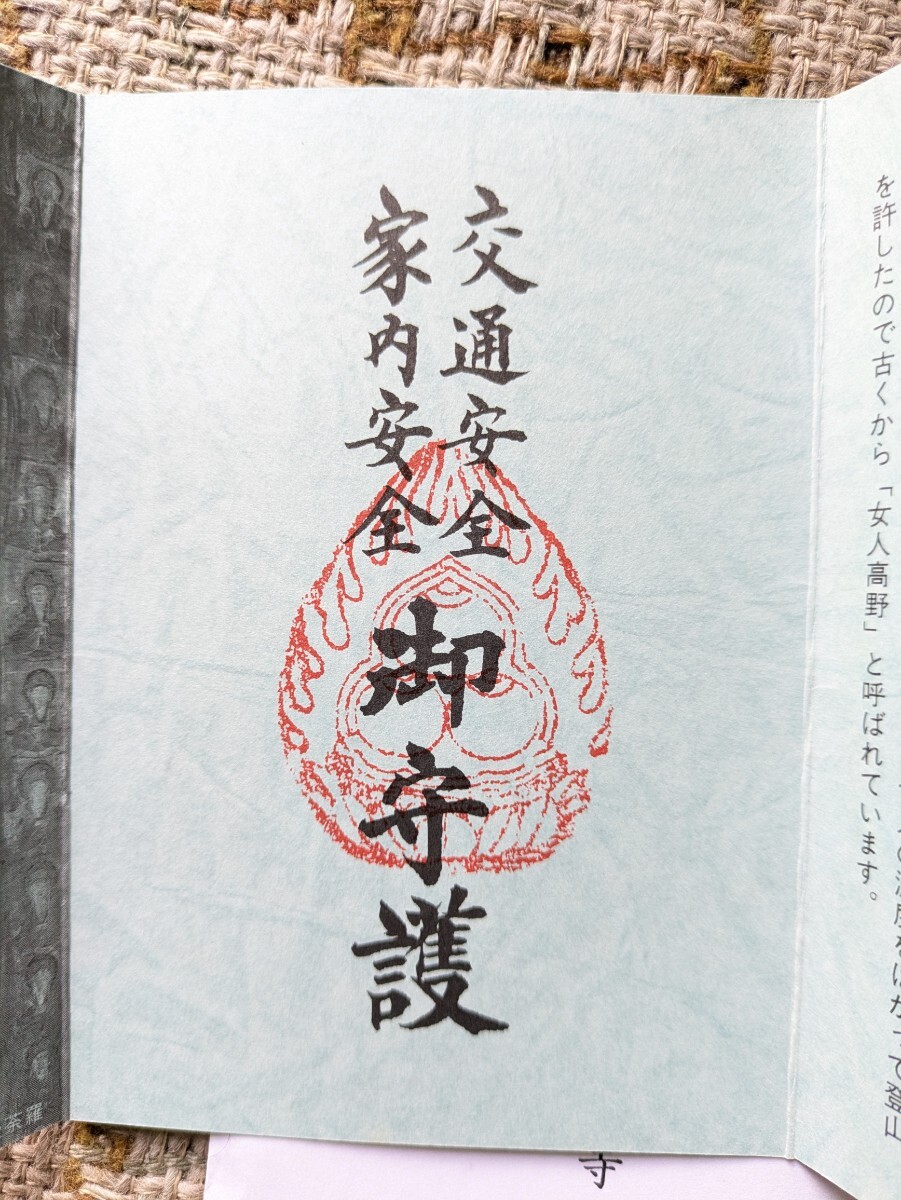 の済度をはかって登山
を許したので古くから「女人高野」と呼ばれています。
交通安全
家内安全
御守護
荼羅
寺